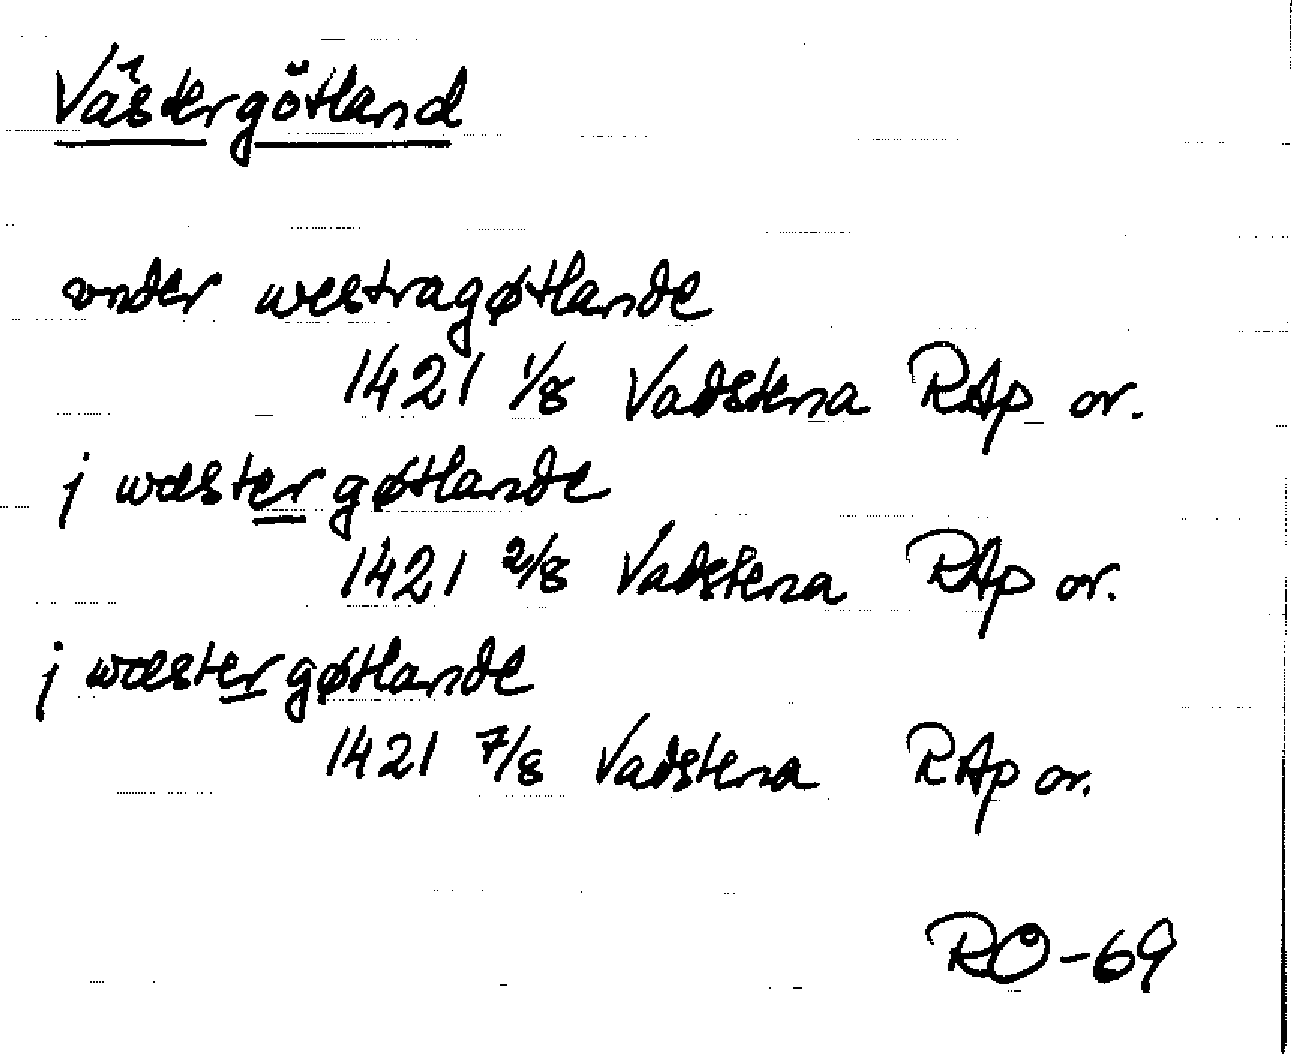 Västergötland
vnder westragøtlande
1421 1/8 Vadstena RAp or.
j wæstergøtlande
1421 2/8 Vadstena RAp or.
j wæstergøtlande
1421 7/8 Vadstena RAp or.
RO-69